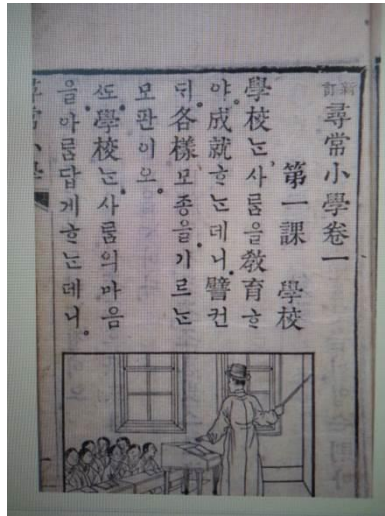 新訂 尋常小學卷一
第一課 學校
學校ᄂᆞᆫ。사ᄅᆞᆷ을敎育ᄒᆞ
야。成就ᄒᆞᄂᆞᆫ데니。譬컨
ᄃᆡ。各樣모종을。기르ᄂᆞᆫ
모판이오。
ᄯᅩ。學校ᄂᆞᆫ。사ᄅᆞᆷ의마음
을。아ᄅᆞᆷ답게ᄒᆞᄂᆞᆫ데니。